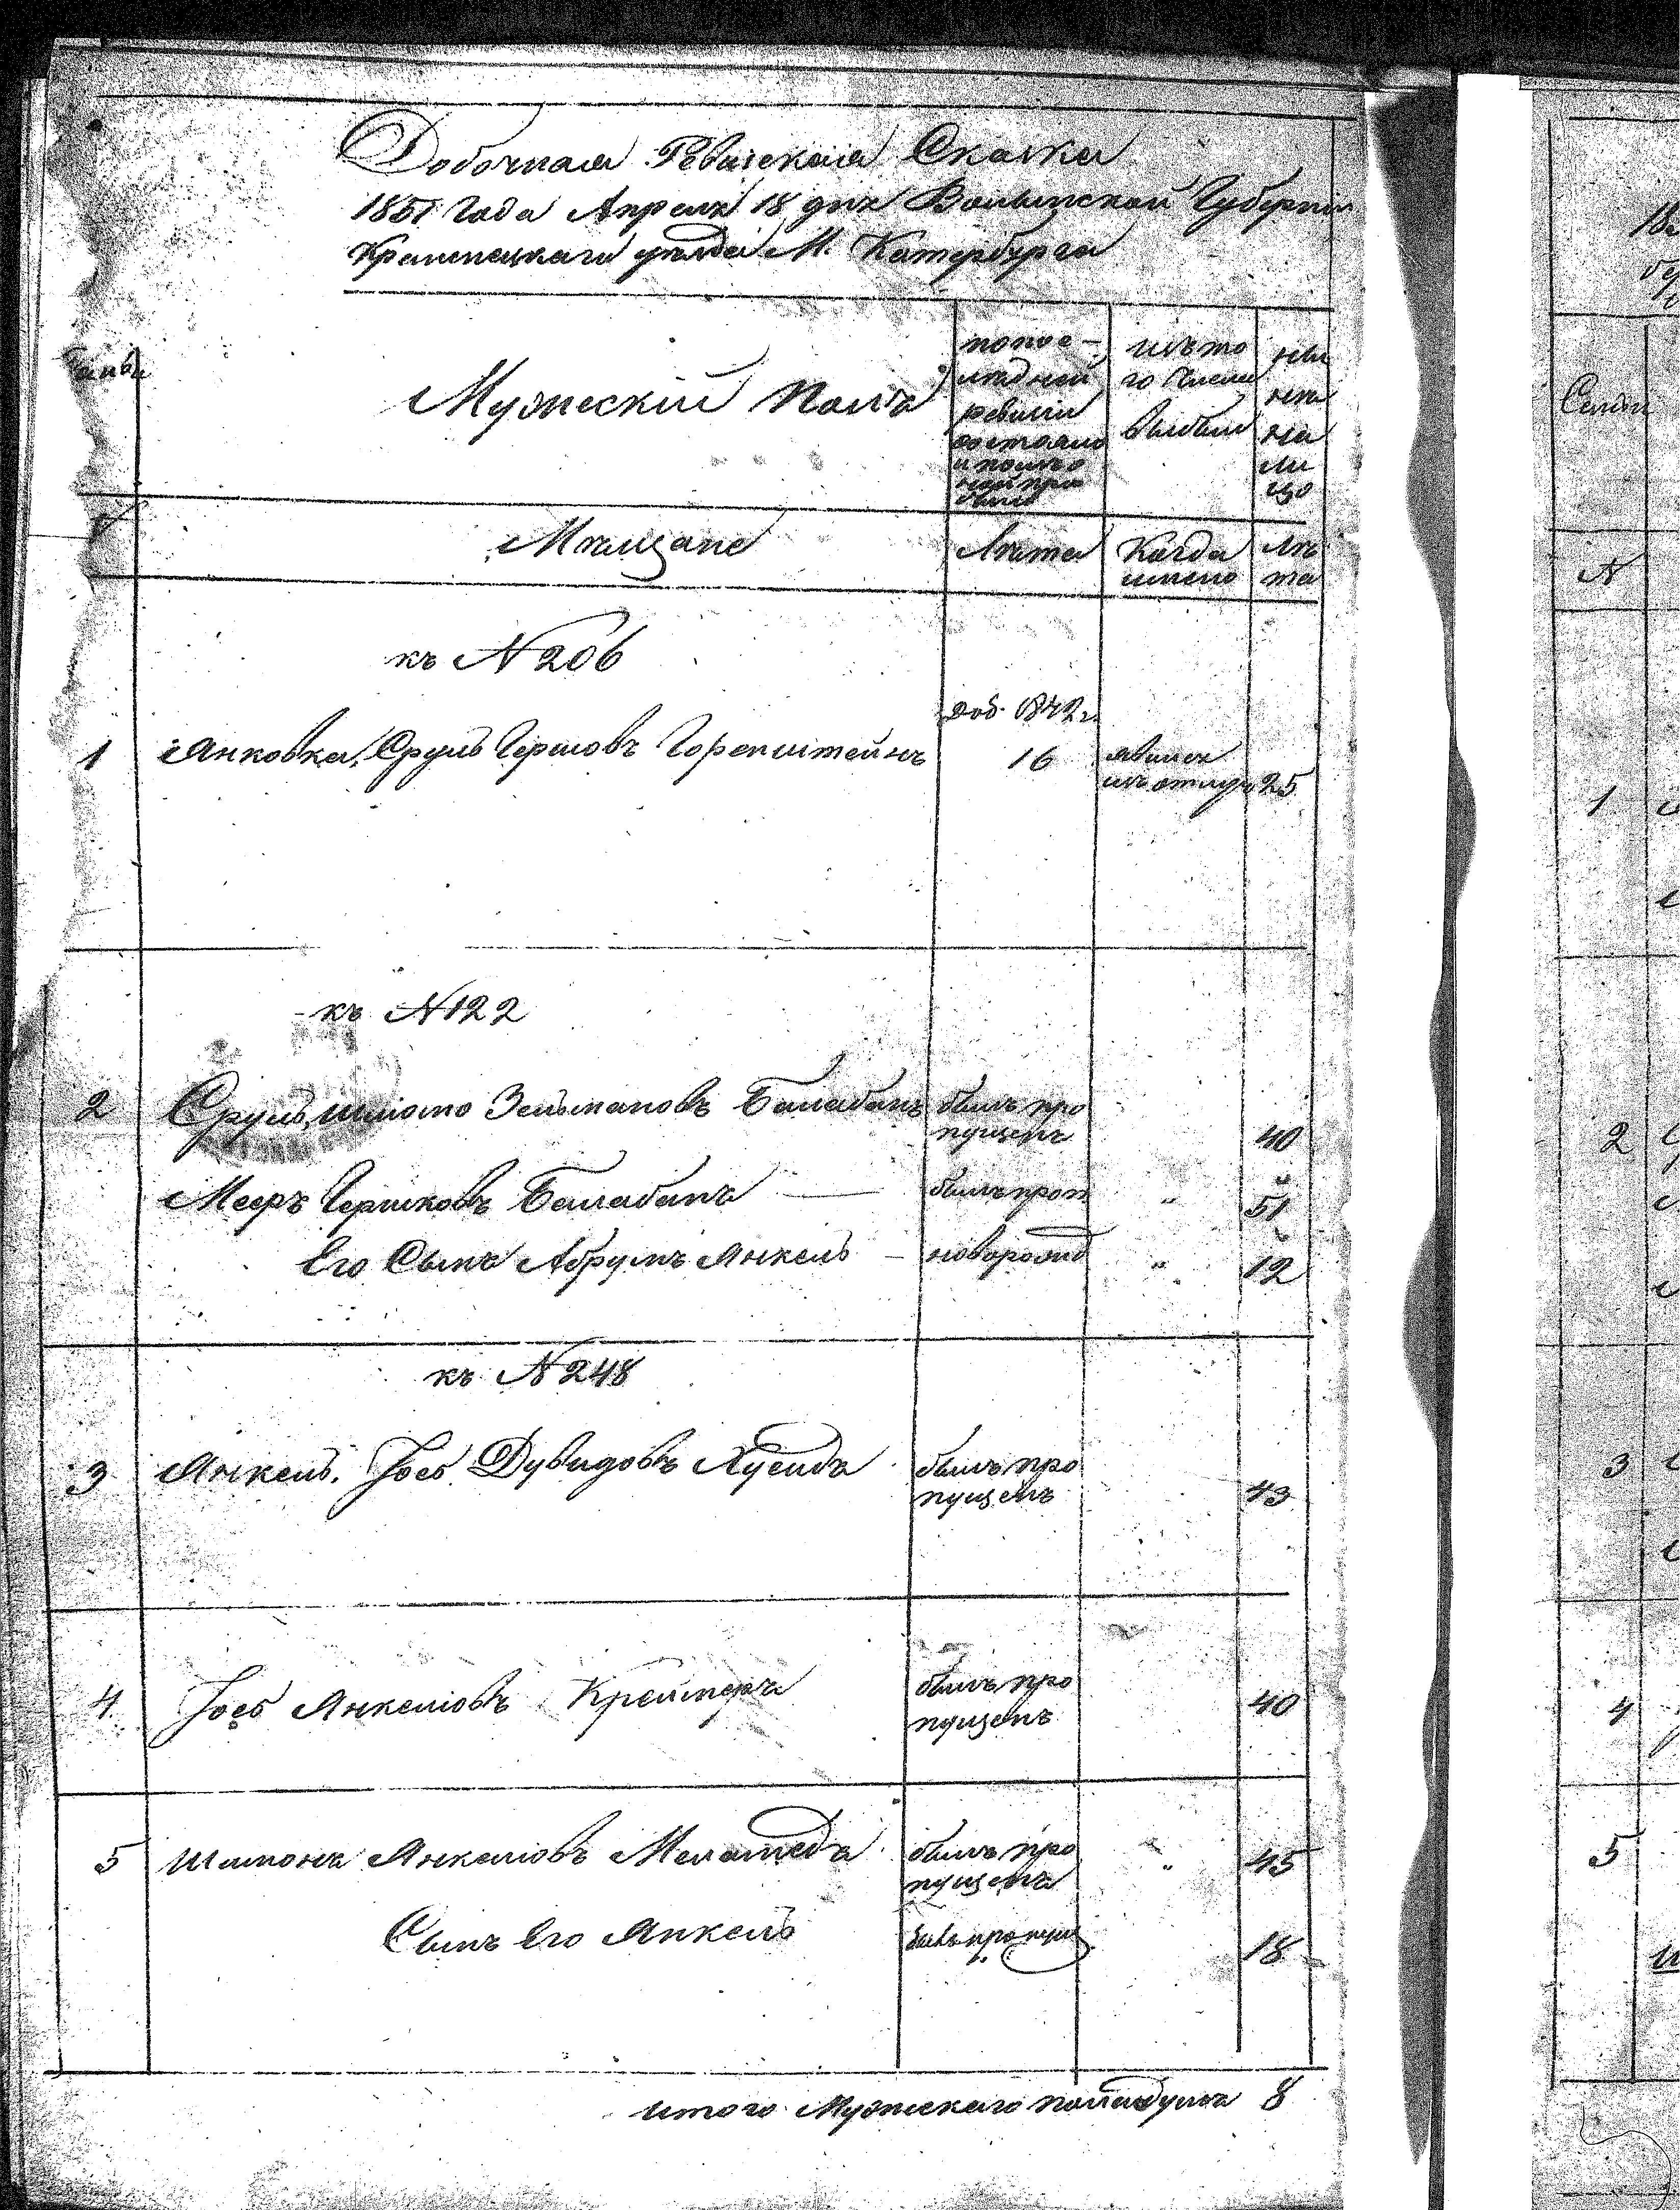 Добочная Ревизская Сказка
1851 Года Апреля 18 дня Волынской Губерніи
Кременецкаго уезда М. Катербурга
Мужескій Полъ
по пос-
ледней
ревизіи
состояло
и после
ной при
было
изъ то
го числа
выбыли
ны
не
на
ли
цо
Семьи
Мещане
Лета
Когда
имено
Ле
та
N
къ N 206
доб. 1842 г.
1 Янковка, Сруль Гершовъ Горенштейнъ 16 явился
изъ отлуч 25
къ N 122
2 Сруль, Шліомо Зельмановъ Балабанъ былъ про
пущенъ 40
Мееръ Гершковъ Балабанъ былъ проп " 51
Его Сынъ Абрумъ Янкель - новорожд " 12
къ N 248
3 Янкель. Іосъ Дувидовъ былъ про
пущенъ 43
4 Іосъ Янкеліовъ Креймеръ былъ про
пущенъ 40
5 Шимонъ Янкеліовъ Меламедъ былъ про
пущенъ " 45
Сынъ Его Янкель былъ пропущ 18
итого Мужескаго пола душъ 8
1
2
3
4
5